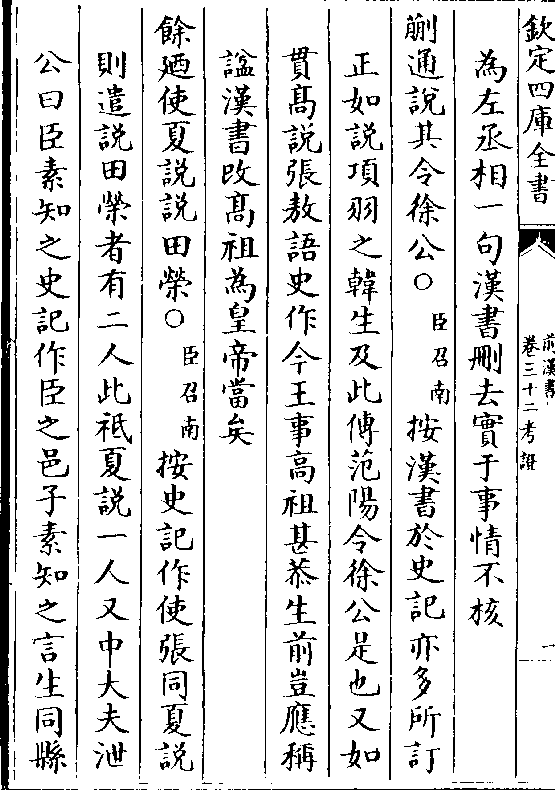 欽定四庫全書
前漢書
卷三十二考證
為左丞相一句漢書刪去實于事情不核
蒯通說其令徐公○臣召南按漢書於史記亦多所訂
正如說項羽之韓生及此傳范陽令徐公是也又如
貫高說張敖語史作今王事高祖甚恭生前豈應稱
諡漢書改高祖為皇帝當矣
餘廼使夏說說田榮○臣召南按史記作使張同夏說
則遣說田榮者有二人此祗夏說一人又中大夫泄
公曰臣素知之史記作臣之邑子素知之言生同縣